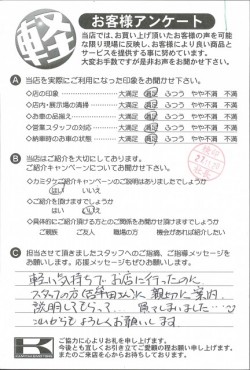 軽
お客様アンケート
当店では、お買い上げ頂いたお客様の声を可能
な限り現場に反映し、お客様により良い商品と
サービスを提供する事に努めています。
大変お手数ですが是非お声をお聞かせ下さい。
A 当店を実際にご利用になった印象をお聞かせ下さい。
◇店の印象 大満足 満足 ふつう やや不満 不満
◇店内・展示場の清掃 大満足 満足 ふつう やや不満 不満
◇お車の品揃え 大満足 満足 ふつう やや不満 不満
◇営業スタッフの対応 大満足 満足 ふつう やや不満 不満
◇納車時のお車の状態 大満足 満足 ふつう やや不満 不満
B 当店はご紹介を大切にしております。
ご紹介キャンペーンについてお聞かせ下さい。
ご紹介キャンペーンのご説明はありましたでしょうか
はい いいえ
◇ご紹介を頂けますでしょうか
はい いいえ
◇具体的にご紹介頂ける方とのご関係をお聞かせ頂けますでしょうか
ご親族 ご友人 職場の方 機会があれば紹介したい
C 担当させて頂きましたスタッフへのご指摘、ご指導メッセージを
お願いします。応援メッセージもぜひお願いします。
軽い気持ちで お店に行ったのに
スタッフの方 親切に案内
説明してもらって 買てしまいました
これからもよろしくお願いします
K
ご協力に心よりお礼を申し上げます。
今後とも宜しくお引き立てご愛顧の程お願い申し上げます。
またのご来店を心からお待ちしております。